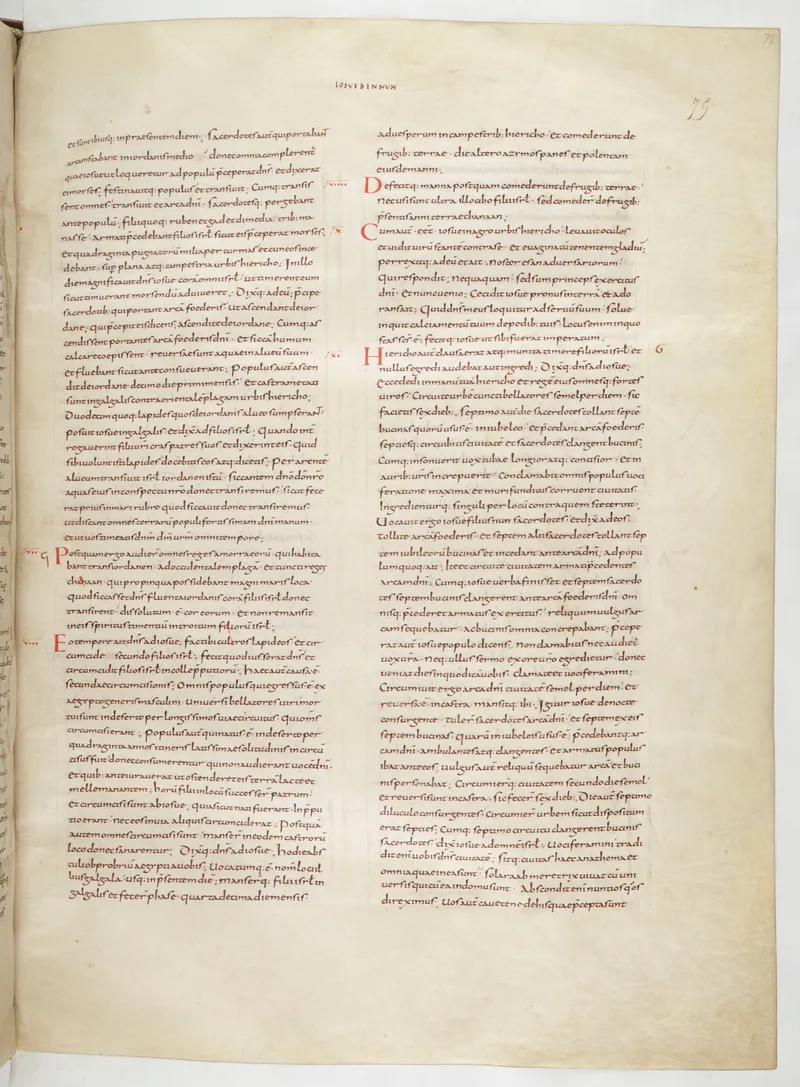 IOSUE BENNUN
75
& sunt ibi usq; in praesentem diem; sacerdotes aut̄ qui portabant
arcam stabant in iordanis medio donec omnia complerent̄
quae iosue ut loqueretur ad populū p̄ceperat dn̄s et dixerat
ei moyses; festinauitq; populus et transiuit; Cumq; transis
sent omnes transiuit et arca dn̄i; sacerdotesq; pergebant
ante populū; filii quoq; ruben et gad et dimedia trib; ma
nasse armati p̄cedebant filios isrl̄ sicut eis p̄ceperat moyses;
et quadraginta pugnatorū milia per turmas et cuneos ince
debant sup plana atq; campestria urbis hiericho; In illo
die magnificauit dn̄s iosue corā omni isrl̄ ut timerent eum
sicut timuerant moysen dū aduiueret; Dixitq; ad eū p̄cipe
sacerdotib; qui portant arcā foederis ut ascendant de ior
dane; qui p̄cepit eis dicens ascendite de iordane; Cumq; as
cendissent portantes arcā foederis dn̄i et siccā humum
calcare coepissent reuersae sunt aquae in alueū suum
et fluebant sicut ante consueuerant; Populus aut̄ ascen
dit de iordane decimo die primi mensis et castrametati
sunt in galgalis contra orientalē plagam urbis hiericho;
Duodecim quoq; lapides quos de iordanis alueo sumpserant
posuit iosue in galgalis et dixit ad filios isrl̄ Quando int̄
rogauerint filii uri cras patres suos et dixerint eis quid
sibi uolunt isti lapides docebitis eos atq; dicetis; Per arente
alueum transiuit isrl̄ iordanen istū siccante dn̄o dō nr̄o
aquas eius in conspectu nr̄o donec transiremus sicut fece
rat prius in mari rubro quod siccauit donec transiremus
ut discant omnes terrarū populi fortissimam dn̄i manum
et ut uos timeatis dn̄m dm̄ urm omni tempore;
Postquam ergo audier omnes reges amorraeorū qui habita
bant trans iordanen ad occidentalem plagā et cuncti reges
chanaan qui propinqua possidebant magni maris loca
quod siccasset dn̄s fluenta iordanis corā filiis isrl̄ donec
transirent dissolutum ē cor eorum et non remansit
in eis spiritus timentiū introitum filiorū isrl̄;
Eo tempore ait dn̄s ad iosue; fac tibi cultros lapideos et cir
cumcide secundo filios isrl̄; fecit quod iusserat dn̄s et
circumcidit filios isrl̄ in colle p̄putiorū; haec aut̄ causa ē
secundae circumcisionis; Omnis populus qui egressus ē ex
aegypto generis masculini uniuersi bellatores uiri mor
tui sunt in deserto per longissimos uiae circuitus qui om̄s
circumcisi erant; Populus aut̄ qui natus ē in deserto per
quadraginta annos itineris latissimae solitudinis incircū
cisus fuit donec consumerentur qui non audierant uocē dn̄i
et quib; ante iurauerat ut ostenderet eis terrā lacte et
melle manantem; horū filii in locū successer patrum
et circumcisi sunt ab iosue; quia sicut nati fuerant in p̄pu
tio erant nec eos in uia aliquis circumciderat; Postquā
autem omnes circumcisi sunt manser in eodem castrorū
loco donec sanarentur; Dixitq; dn̄s ad iosue; hodie abs
tuli obprobriū aegypti a uobis; Uocatumq; ē nom̄ loci il
lius galgala usq; in p̄sentem diē; manserq; filii isrl̄ in
galgalis et fecer phase quarta decima die mensis
ad uesperum in campestrib; hiericho et comederunt de
frugib; terrae die altero azymos panes et polentam
eiusdem anni;
Defecitq; manna postquam comederunt de frugib; terrae
nec usi sunt ultra illo cibo filii isrl̄ sed comeder de frugib;
p̄sentis anni terrae chanaan;
Cum aut̄ eēt iosue in agro urbis hiericho leuauit oculos
et uidit uirū stantē contra se et euaginatū tenentem gladiū;
perrexitq; ad eū et ait; noster es an aduersariorum
Qui respondit; nequaquam sed sum princeps exercitus
dn̄i et nunc uenio; Cecidit iosue pronus in terrā et ado
rans ait; Quid dn̄s meus loquitur ad seruū suum solue
inquit calciamentū tuum de pedib; tuis locus enim in quo
stas scs̄ ē; fecitq; iosue ut sibi fuerat imperatum;
Hiericho aut̄ clausa erat atq; munita timore filiorū isrl̄ et
nullus egredi audebat aut ingredi; Dixitq; dn̄s ad iosue;
ecce dedi in manu tua hiericho et regē eius omnesq; fortes
uiros; Circuite urbē cuncti bellatores semel per diem sic
facietis sex dieb; septimo aut̄ die sacerdotes tollant septē
bucinas quorū usus ē in iubeleo et p̄cedant arcā foederis
septiesq; circuibitis ciuitatē et sacerdotes clangent bucinis;
Cumq; insonuerit uox tubae longior atq; concisior et in
aurib; uris increpuerit Conclamabit omnis populus uoci
feratione maxima et muri funditus corruent ciuitatis
Ingredienturq; singuli per locū contra quem steterint;
Uocauit ergo iosue filius nun sacerdotes et dixit ad eos;
tollite arcā foederis et septem alii sacerdotes tollant sep
tem iubileorū bucinas et incedant ante arcā dn̄i; ad popu
lum quoq; ait; Ite et circuite ciuitatem armati p̄cedentes
arcam dn̄i; Cumq; iosue uerba finisset et septem sacerdo
tes septem bucinis clangerent ante arcā foederis dn̄i om
nisq; p̄cederet armatus exercitus reliquum uulgus ar
cam sequebatur ac bucinis omnia concrepabant; p̄cepe
rat aut̄ iosue populo dicens; non clamabitis nec audiet̄
uox ura neq; ullus sermo ex ore uro egredietur donec
ueniat dies in quo dicā uobis; clamate et uociferamini;
Circumiuit ergo arca dn̄i ciuitatē semel per diem et
reuersa ē in castra mansitq; ibi; Igitur iosue de nocte
consurgente tuler sacerdotes arcā dn̄i et septem ex eis
septem bucinas quarū in iubeleo usus ē; p̄cedebantq; ar
cam dn̄i ambulantes atq; clangentes et armatus populus
ibat ante eos; uulgus aut̄ reliquū sequebatur arcā et buci
nis personabat; Circumierq; ciuitatem secundo die semel
et reuersi sunt in castra; sic fecer sex dieb; Die aut̄ septimo
diluculo consurgentes Circumier urbem sicut dispositum
erat septies; Cumq; septimo circuitu clangerent bucinis
sacerdotes dixit iosue ad omne isrl̄; Uociferamini tradi
dit enī uobis dn̄s ciuitatē; sitq; ciuitas haec anathema et
omnia quae in ea sunt sola raab meretrix uiuat cū uni
uersis qui cū ea in domo sunt Abscondit enī nuntios q̄s
direximus; Uos aut̄ cauete ne de his quae p̄cepta sunt
G